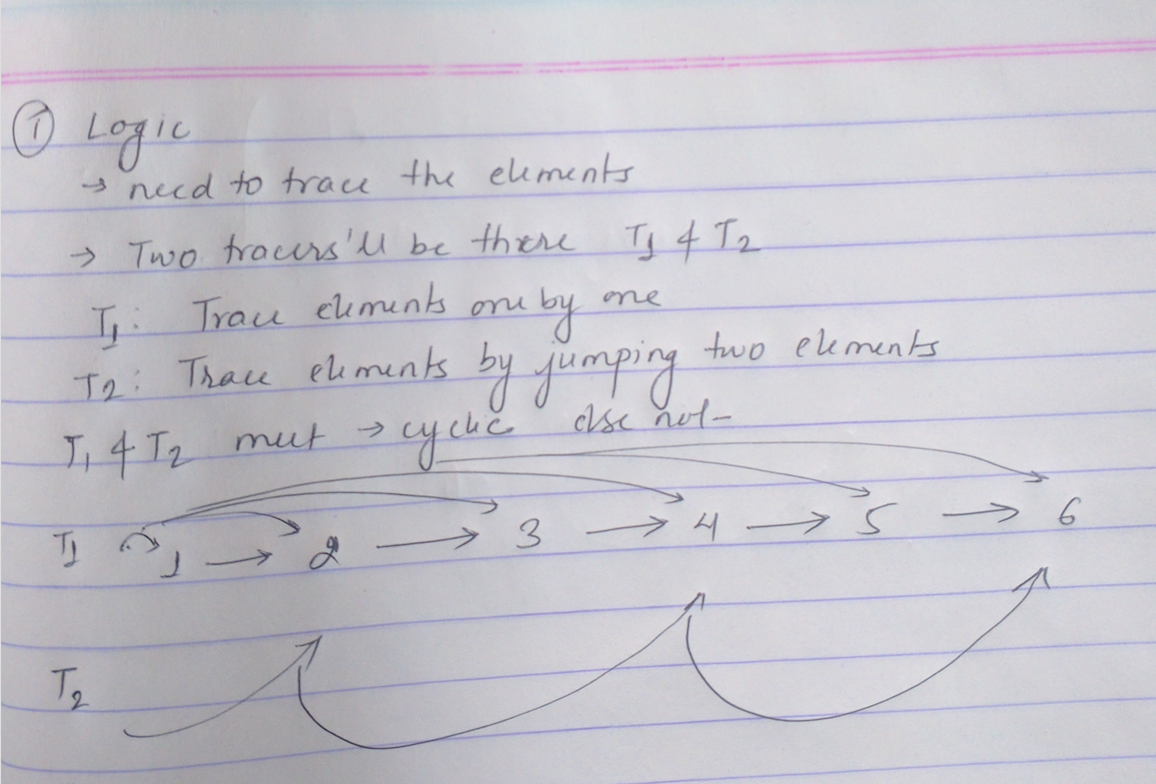 ① Logic
→ need to trace the elements
→ Two tracers'll be there T1 & T2
T1: Trace elements one by one
T2: Trace elements by jumping two elements
T1 & T2 meet → cyclic else not
T1 1 → 2 → 3 → 4 → 5 → 6
T2